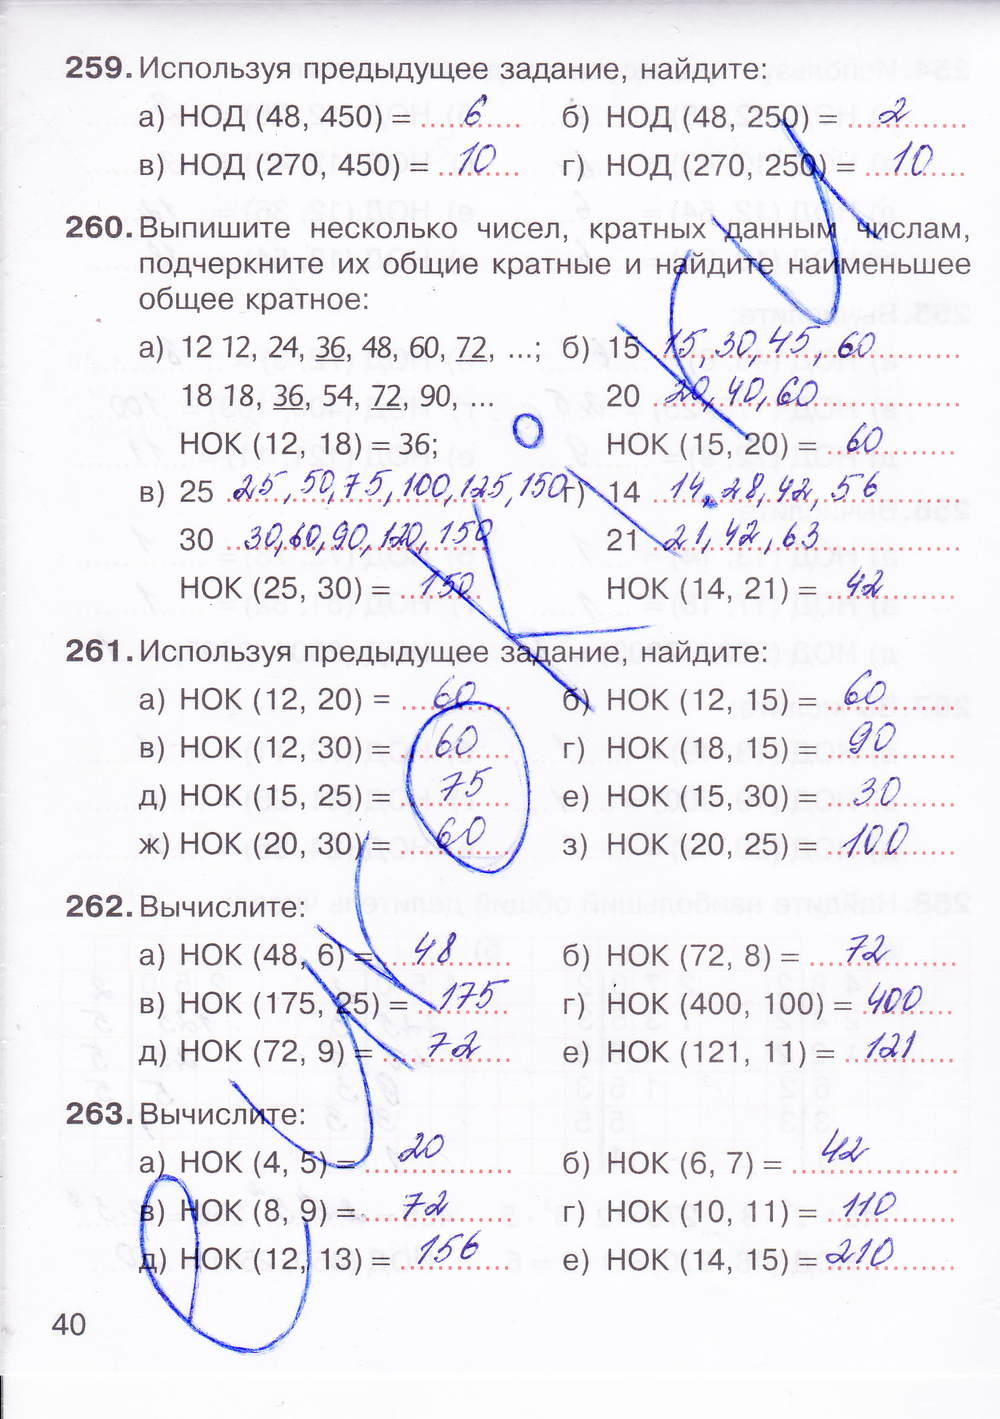 259. Используя предыдущее задание, найдите:
а) НОД (48, 450) = 6 б) НОД (48, 250) = 2
в) НОД (270, 450) = 10 г) НОД (270, 250) = 10
260. Выпишите несколько чисел, кратных данным числам,
подчеркните их общие кратные и найдите наименьшее
общее кратное:
а) 12 12, 24, 36, 48, 60, 72, ...; б) 15 15, 30, 45, 60
18 18, 36, 54, 72, 90, ... 20 20, 40, 60
НОК (12, 18) = 36; НОК (15, 20) = 60
в) 25 25, 50, 75, 100, 125, 150 г) 14 14, 28, 42, 56
30 30, 60, 90, 120, 150 21 21, 42, 63
НОК (25, 30) = 150 НОК (14, 21) = 42
261. Используя предыдущее задание, найдите:
а) НОК (12, 20) = 60 б) НОК (12, 15) = 60
в) НОК (12, 30) = 60 г) НОК (18, 15) = 90
д) НОК (15, 25) = 75 е) НОК (15, 30) = 30
ж) НОК (20, 30) = 60 з) НОК (20, 25) = 100
262. Вычислите:
а) НОК (48, 6) = 48 б) НОК (72, 8) = 72
в) НОК (175, 25) = 175 г) НОК (400, 100) = 400
д) НОК (72, 9) = 72 е) НОК (121, 11) = 121
263. Вычислите:
а) НОК (4, 5) = 20 б) НОК (6, 7) = 42
в) НОК (8, 9) = 72 г) НОК (10, 11) = 110
д) НОК (12, 13) = 156 е) НОК (14, 15) = 210
40